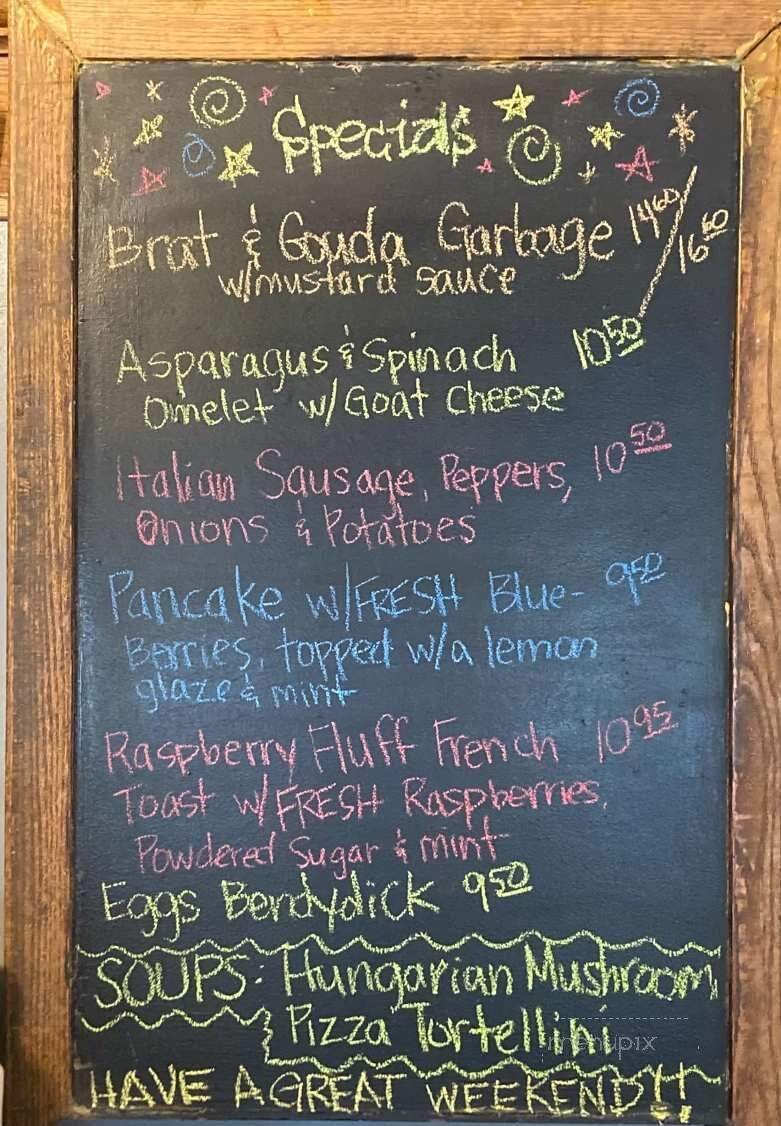 Specials
Brat & Gouda Garbage 14⁶⁰/16⁶⁰
w/mustard sauce
Asparagus & Spinach 10⁵⁰
Omelet w/Goat Cheese
Italian Sausage, Peppers, 10⁵⁰
Onions & Potatoes
Pancake w/FRESH Blue- 9⁵⁰
Berries, topped w/a lemon
glaze & mint
Raspberry Fluff French 10⁹⁵
Toast w/FRESH Raspberries,
Powdered Sugar & mint
Eggs Bendydick 9⁵⁰
SOUPS: Hungarian Mushroom
& Pizza Tortellini
menupix
HAVE A GREAT WEEKEND!!